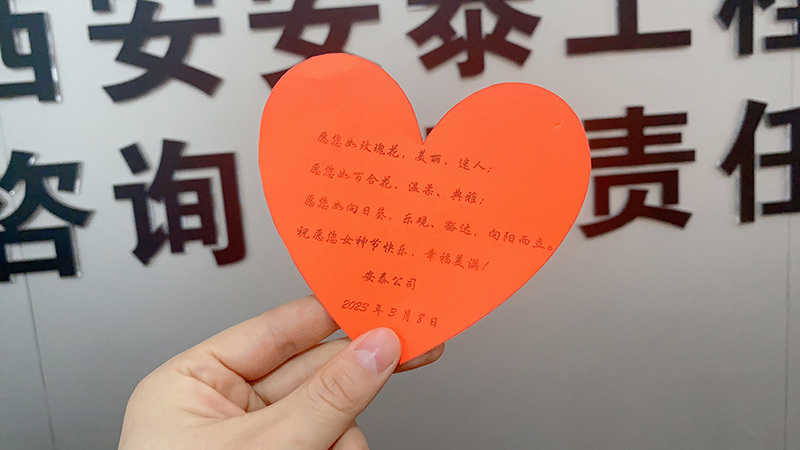 西安安泰工程
咨询 责任
愿您如玫瑰花，美丽、迷人；
愿您如百合花，温柔、典雅；
愿您如向日葵，乐观、豁达，向阳而立。
祝愿您女神节快乐，幸福美满！
安泰公司
2023年3月8日